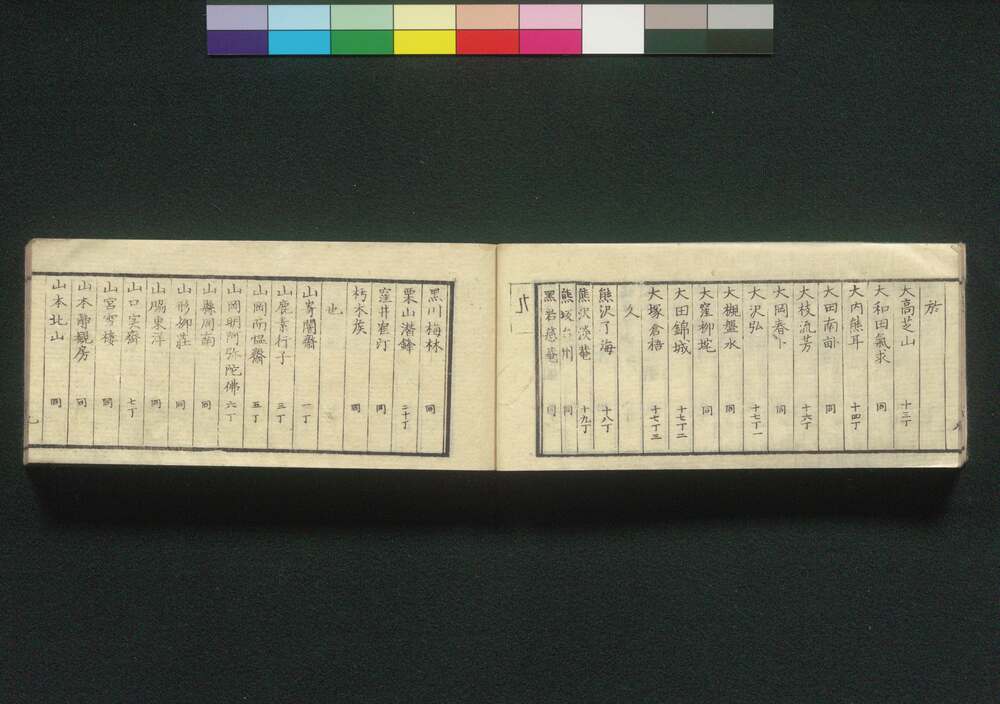 於
大高芝山 十三丁
大和田氣求 同
大内熊耳 十四丁
大田南畝 同
大枝流芳 十六丁
大岡春卜 同
大沢弘 十七丁一
大槻盤水 同
大窪柳坨 同
大田錦城 十七丁二
大塚倉梧 十七丁三
久
熊沢了海 十八丁
熊沢淡菴 十九丁
熊坂台州 同
黒岩慈菴 同
九
黒川梅林 同
栗山潜鋒 二十丁
窪井崔汀 同
朽木侯 同
也
山嵜闇齋 一丁
山鹿素行子 三丁
山岡而慍齋 五丁
山岡明阿弥陀佛 六丁
山縣周南 同
山形卯荘 同
山脇東洋 同
山口実齋 七丁
山宮雪樓 同
山本静観房 同
山本北山 同